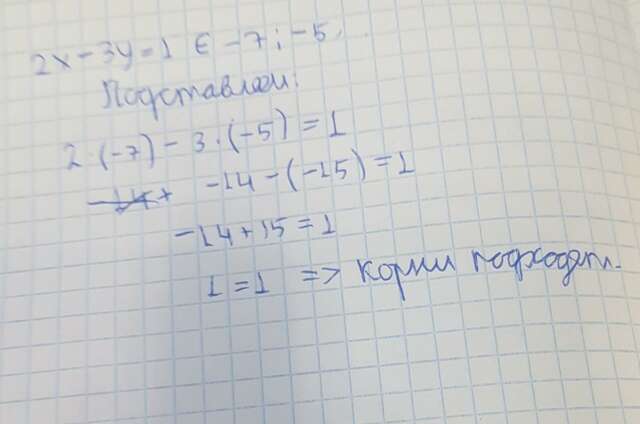 2x - 3y = 1 ∈ -7; -5.
Подставляем:
2·(-7) - 3·(-5) = 1
-14 - (-15) = 1
-14 + 15 = 1
1 = 1 => корни подходят.